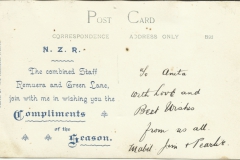 POST CARD
CORRESPONDENCE
ADDRESS ONLY
N. Z. R.
The combined Staff
Remuera and Green Lane,
join with me in wishing you the
Compliments
of the
Season.
To Anita
With Love and
Best Wishes
from us all
Mabel Jim & Pearlie